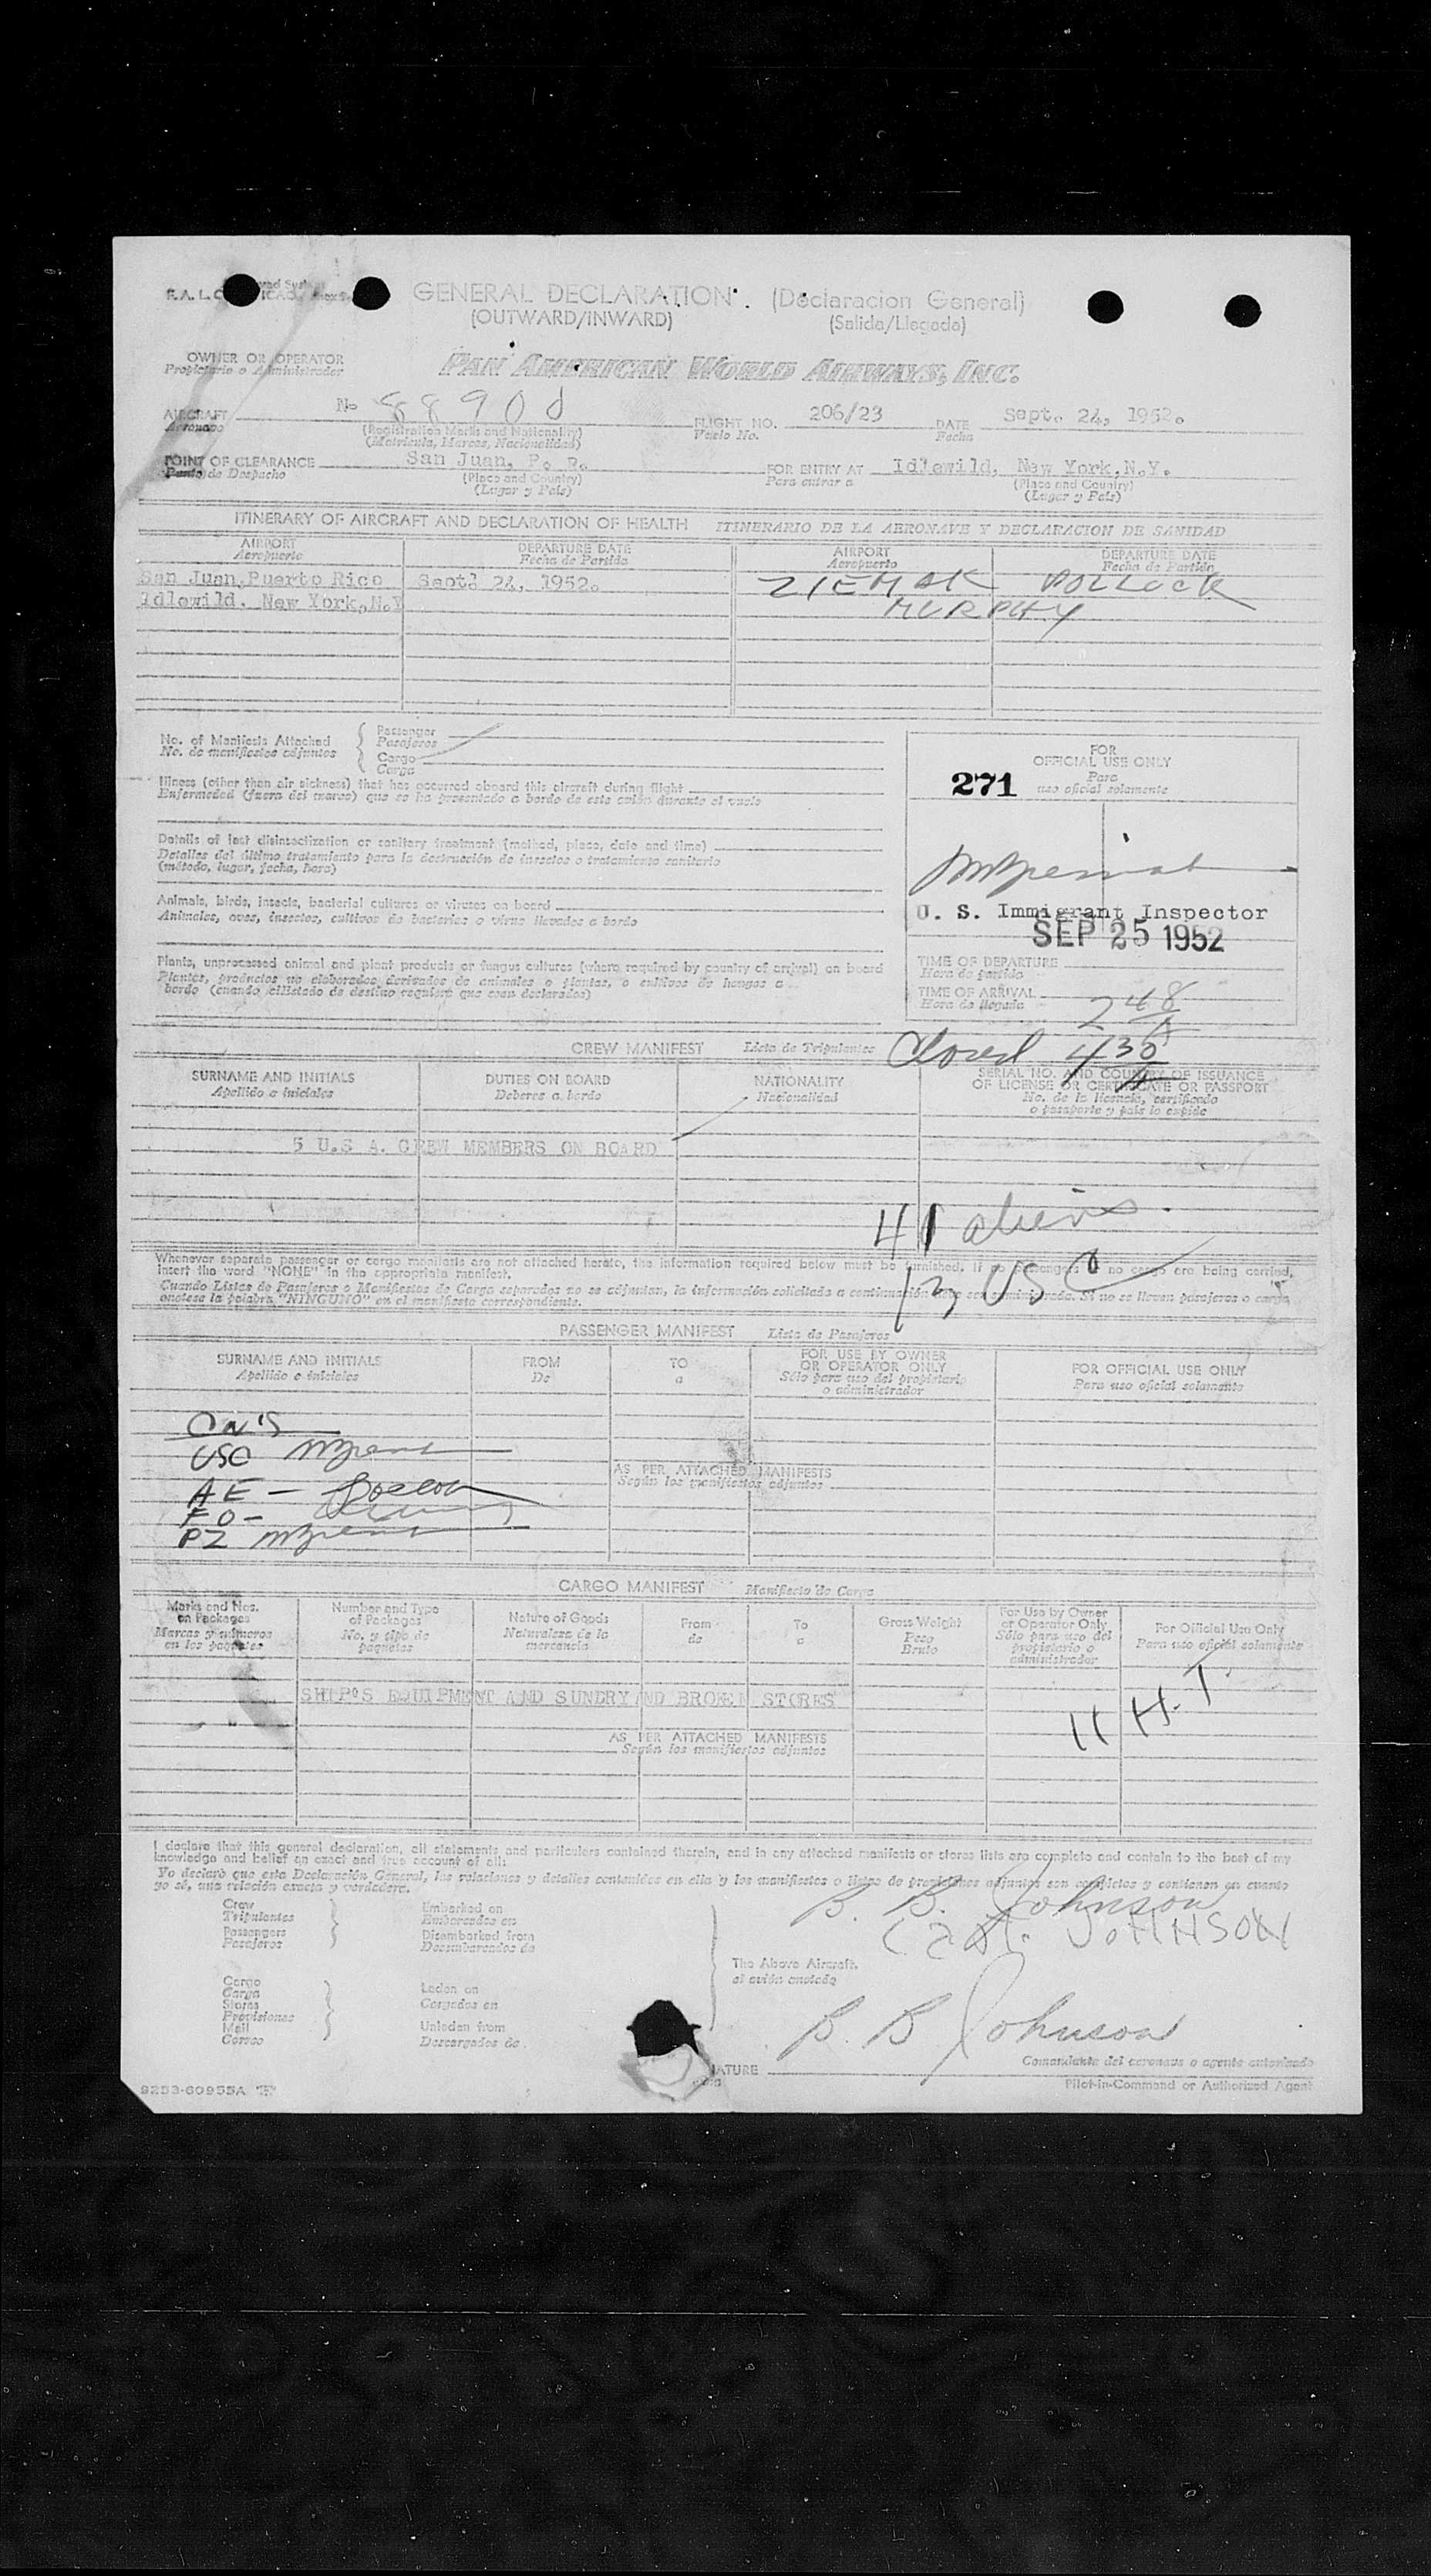 GENERAL DECLARATION (Declaracion General)
(OUTWARD/INWARD) (Salida/Llegada)
OWNER OR OPERATOR PAN AMERICAN WORLD AIRWAYS, INC.
Propietario o Administrador
AIRCRAFT No 88900 FLIGHT NO. 206/23 DATE Sept. 24, 1952.
Aeronave (Registration Marks and Nationality) Vuelo No. Fecha
(Matricula, Marcas, Nacionalidad)
POINT OF CLEARANCE San Juan, P. R. FOR ENTRY AT Idlewild, New York, N.Y.
Punto de Despacho (Place and Country) Para entrar a (Place and Country)
(Lugar y Pais) (Lugar y Pais)
ITINERARY OF AIRCRAFT AND DECLARATION OF HEALTH ITINERARIO DE LA AERONAVE Y DECLARACION DE SANIDAD
AIRPORT DEPARTURE DATE AIRPORT DEPARTURE DATE
Aeropuerto Fecha de Partida Aeropuerto Fecha de Partida
San Juan, Puerto Rico Sept. 24, 1952. ZIEMAK POLLOCK
Idlewild, New York, N.Y MURPHY
No. of Manifests Attached Passenger
No. de manifiestos adjuntos Pasajeros
Cargo
Carga
FOR
OFFICIAL USE ONLY
271 Para
uso oficial solamente
Illness (other than air sickness) that has occurred aboard this aircraft during flight
Enfermedad (fuera del mareo) que se ha presentado a bordo de este avión durante el vuelo
Details of last disinsectization or sanitary treatment (method, place, date and time)
Detalles del último tratamiento para la destrucción de insectos o tratamiento sanitario
(método, lugar, fecha, hora)
Animals, birds, insects, bacterial cultures or viruses on board
Animales, aves, insectos, cultivos de bacterias o virus llevados a bordo
U. S. Immigrant Inspector
SEP 25 1952
Plants, unprocessed animal and plant products or fungus cultures (where required by country of arrival) on board
Plantas, productos no elaborados derivados de animales o plantas, o cultivos de hongos a
bordo
TIME OF DEPARTURE
Hora de partida
TIME OF ARRIVAL 2 48 A
Hora de llegada
CREW MANIFEST Lista de Tripulantes Closed 4 30 A
SURNAME AND INITIALS DUTIES ON BOARD NATIONALITY SERIAL NO. AND COUNTRY OF ISSUANCE
Apellido e iniciales Deberes a bordo Nacionalidad OF LICENSE OR CERTIFICATE OR PASSPORT
No. de la licencia, certificado
o pasaporte y pais lo expide
5 U.S A. CREW MEMBERS ON BOARD
41 aliens
Whenever separate passenger or cargo manifests are not attached hereto, the information required below must be furnished. If no passengers or no cargo are being carried,
insert the word "NONE" in the appropriate manifest.
Cuando Listas de Pasajeros o Manifiestos de Carga separados no se adjuntan, la información solicitada a continuación debe ser suministrada. Si no se llevan pasajeros o carga
anótese la palabra "NINGUNO" en el manifiesto correspondiente.
USC
PASSENGER MANIFEST Lista de Pasajeros
SURNAME AND INITIALS FROM TO FOR USE BY OWNER OR OPERATOR ONLY FOR OFFICIAL USE ONLY
Apellido e iniciales De a Sólo para uso del propietario o administrador Para uso oficial solamente
USC
AE -
FO -
PZ
AS PER ATTACHED MANIFESTS
Según los manifiestos adjuntos
CARGO MANIFEST Manifiesto de Carga
Marks and Nos. on Packages Number and Type of Packages Nature of Goods From To Gross Weight For Use by Owner or Operator Only For Official Use Only
Marcas y números en los paquetes No. y tipo de paquetes Naturaleza de la mercancia de a Peso Bruto Sólo para uso del propietario o administrador Para uso oficial solamente
SHIP'S EQUIPMENT AND SUNDRY AND BROKEN STORES
11 H. T.
AS PER ATTACHED MANIFESTS
Según los manifiestos adjuntos
I declare that this general declaration, all statements and particulars contained therein, and in any attached manifests or stores lists are complete and contain to the best of my
knowledge and belief an exact and true account of all:
Yo declaro que esta Declaración General, las relaciones y detalles contenidos en ella y los manifiestos o listas de provisiones adjuntos son completos y contienen en cuanto
yo sé, una relación exacta y verdadera.
B. B. Johnson
Capt. JOHNSON
Crew Embarked on
Tripulantes Embarcados en
Passengers Disembarked from
Pasajeros Desembarcados de
The Above Aircraft.
el avión anotado
Cargo Laden on
Carga Cargados en
Stores
Provisiones
Mail Unladen from
Correo Descargados de
B. B Johnson
NATURE
Comandante del aeronave o agente autorizado
Pilot-in-Command or Authorized Agent
9253-60955A